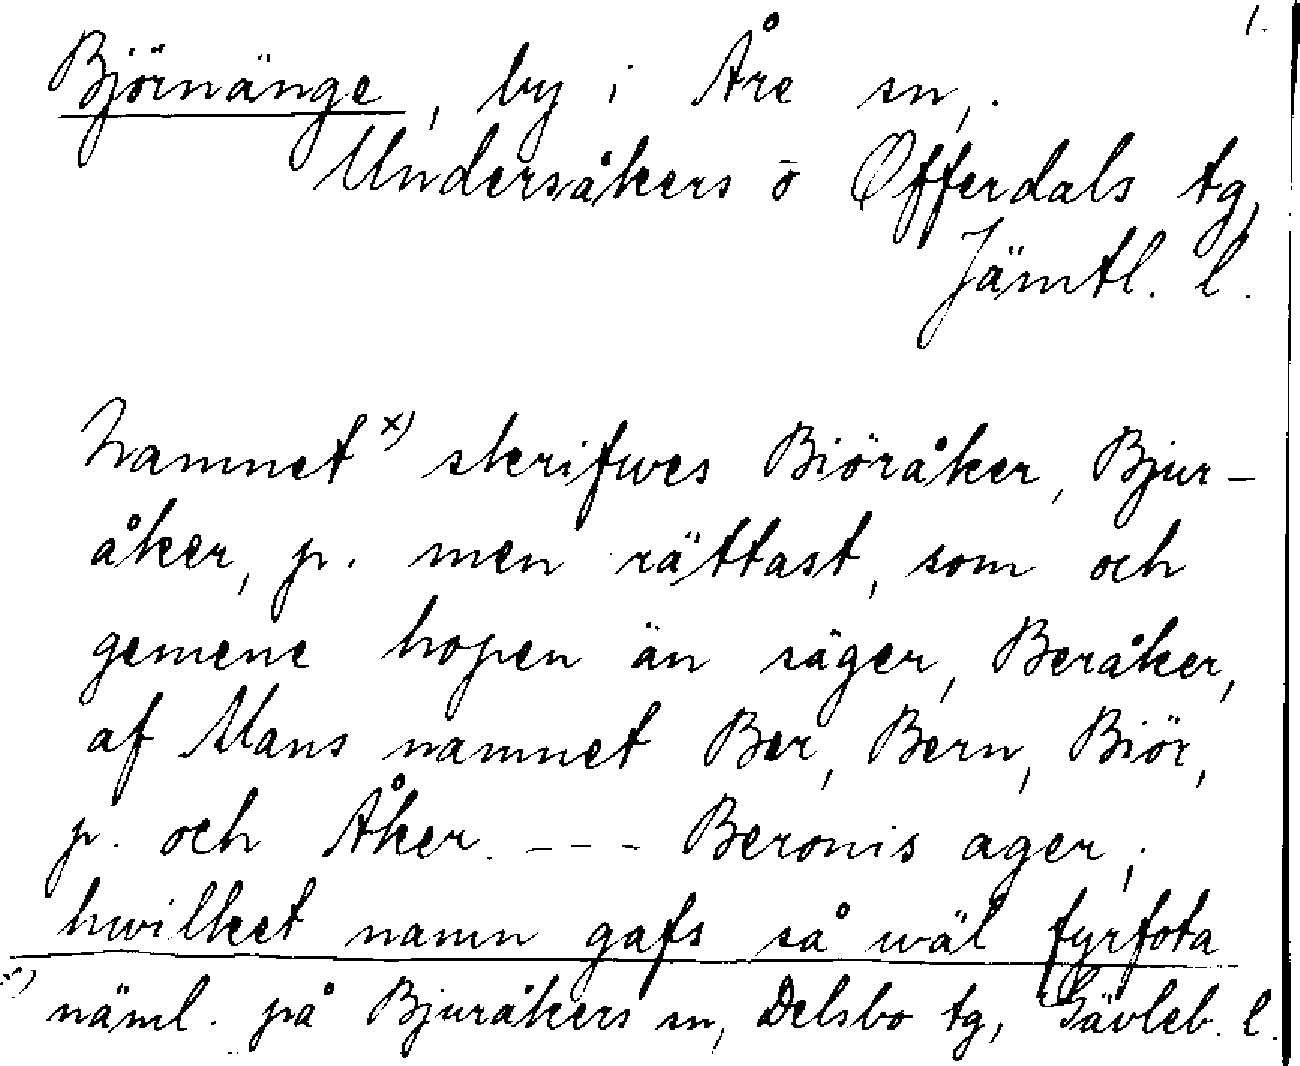 1.
Björnänge, by i Åre sn,.
Undersåkers o Offerdals tg,
Jämtl. l.
Namnet x) skrifwes Biöråker, Bjur-
åker, p. men rättast, som och
gemene hopen än säger, Beråker,
af Mans namnet Ber, Bern, Biör,
p. och Åker. --- Beronis ager;
hwilket namn gafs så wäl fyrfota
x) näml. på Bjuråkers sn, Delsbo tg, Gävleb. l.